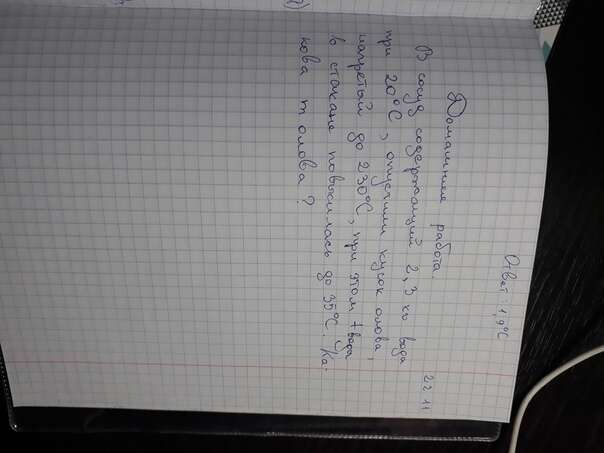 Ответ : 1,9°С
22 11
Домашняя работа.
В сосуд содержащий 2,3 кг вода
при 20°С, опустили кусок олова,
нагретый до 230°С, при этом t вода
в стакане повысилась до 35°С. Ка-
кова m олова ?